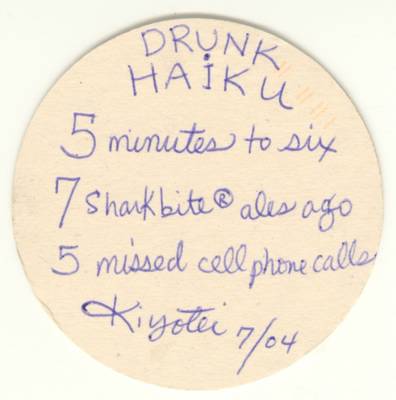 DRUNK
HAIKU
5 minutes to six
7 Sharkbite® ales ago
5 missed cell phone calls
Kiyotei 7/04